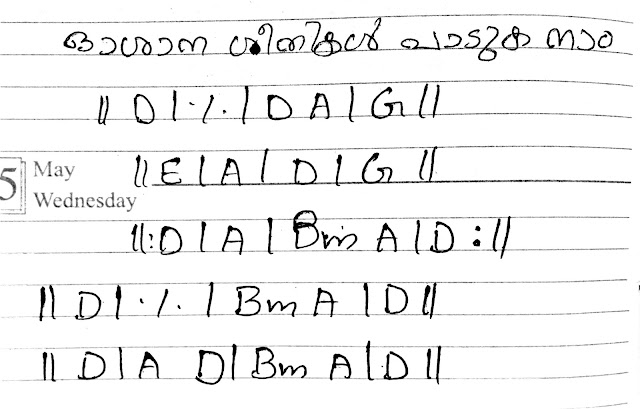 ഓശാന ശീതികൾ പാടുക നാം
|| D | ·/. | D A | G ||
|| E | A | D | G ||
5 May
Wednesday
||: D | A | Bm A | D :||
|| D | ·/. | Bm A | D ||
|| D | A D | Bm A | D ||